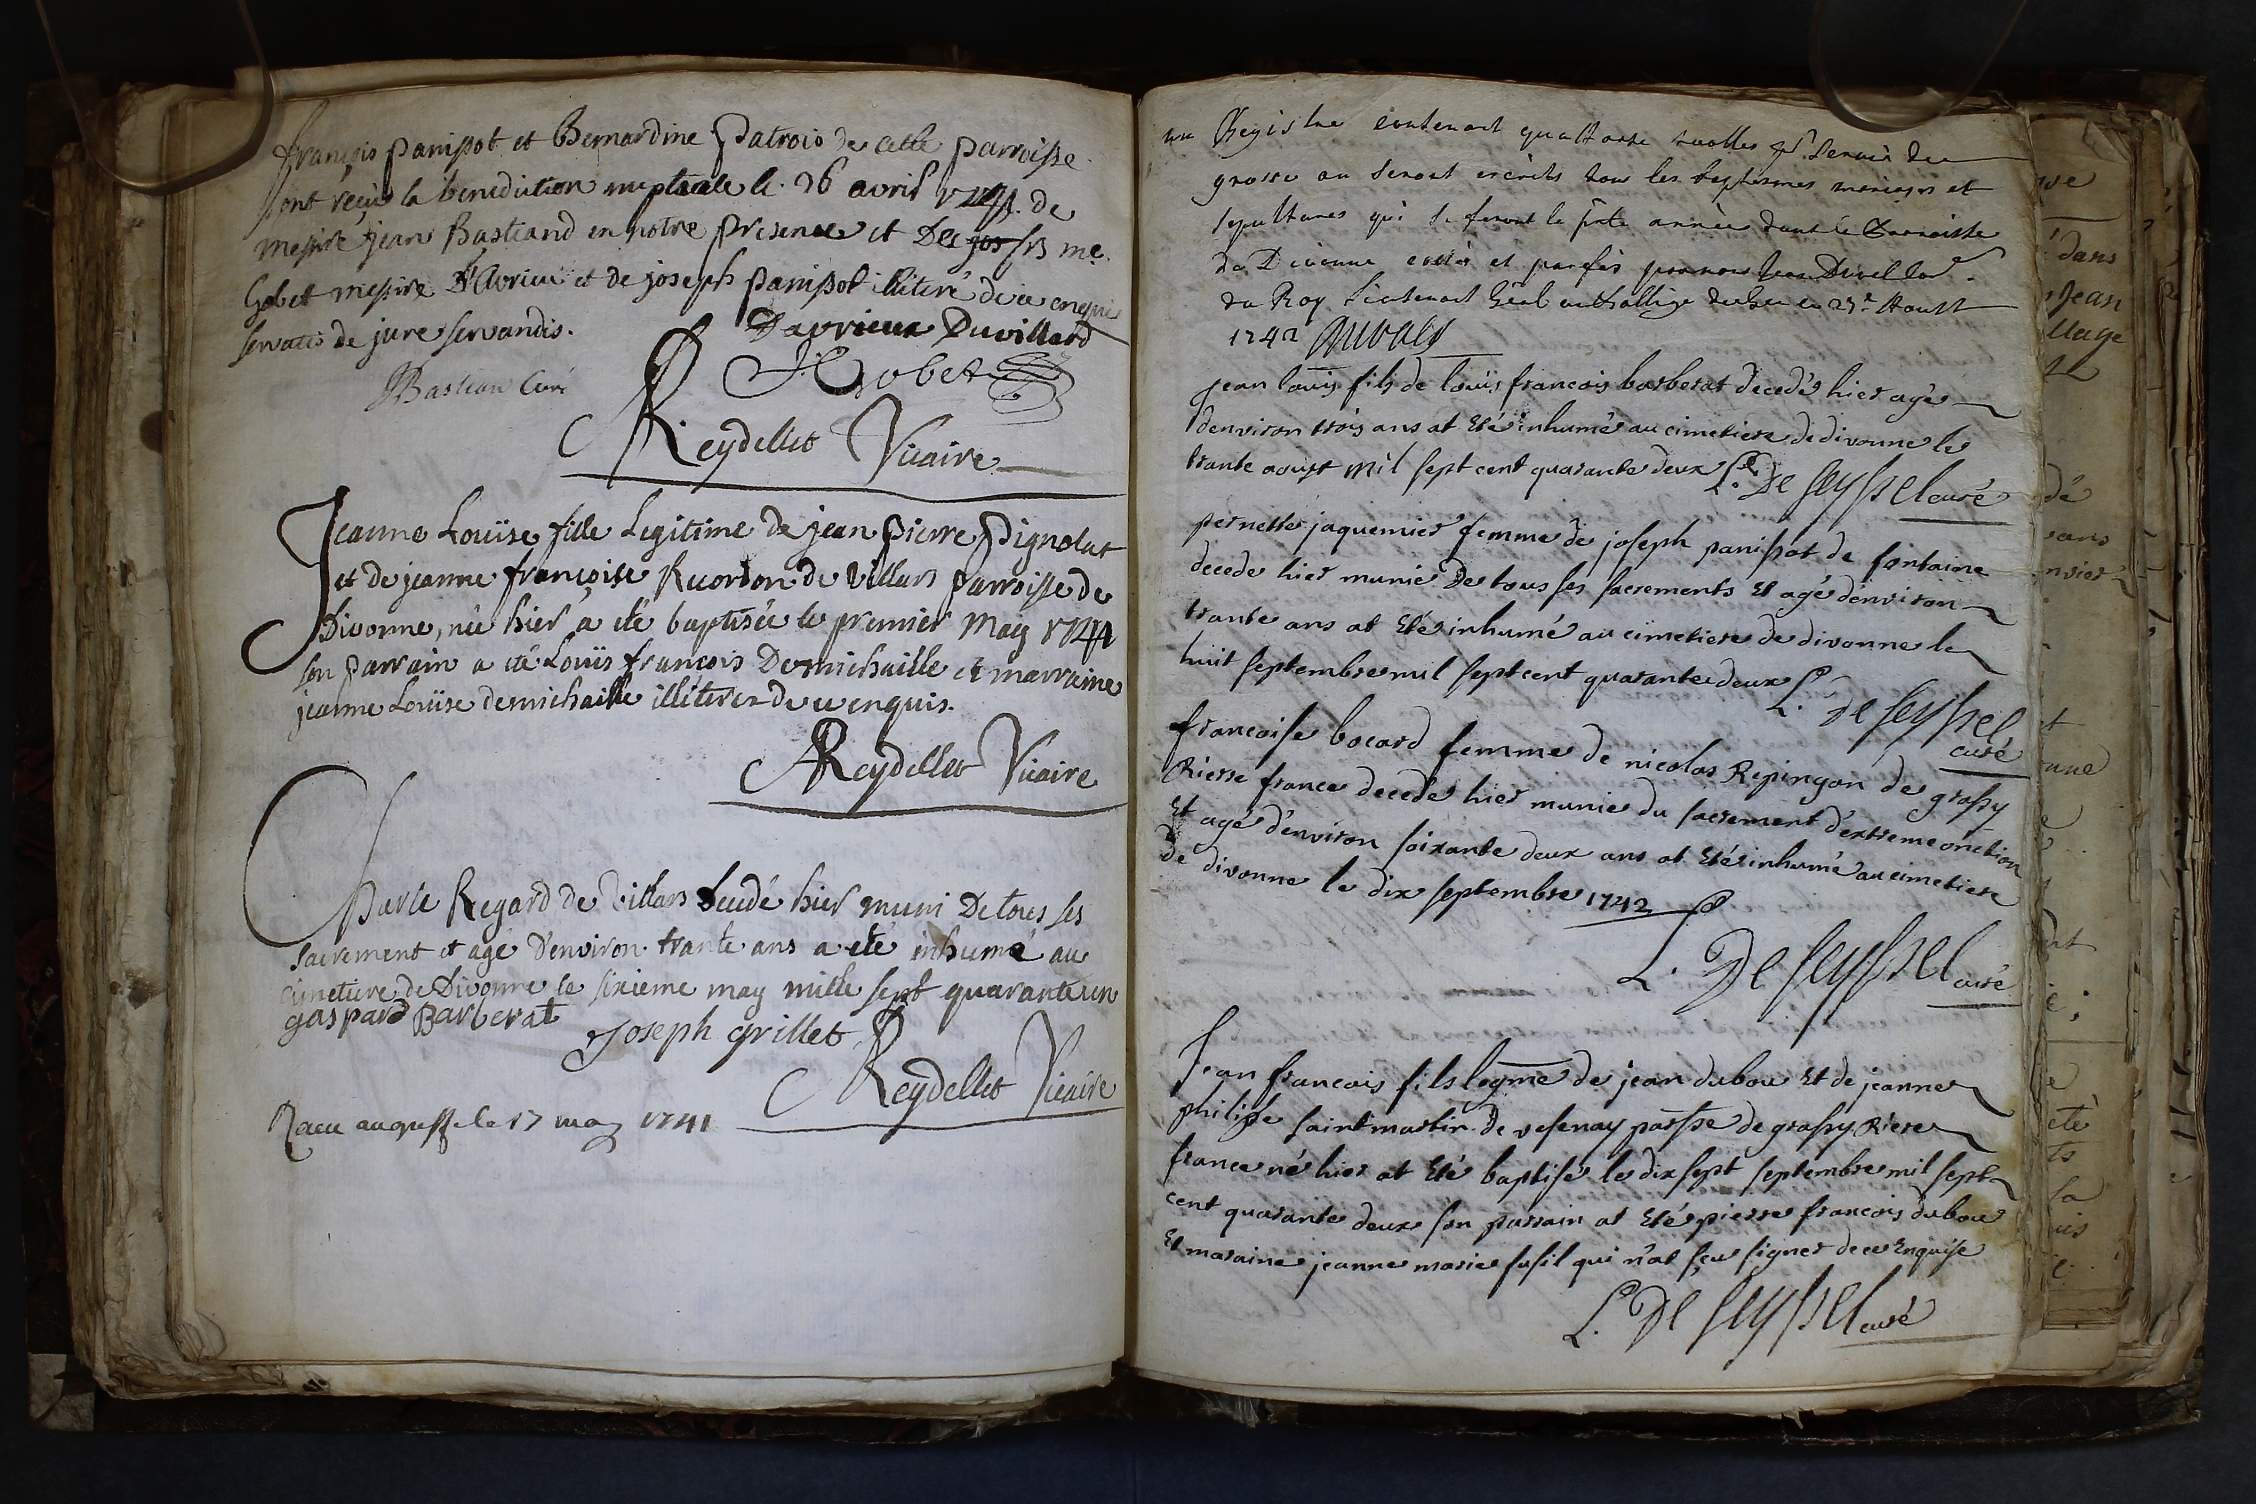 françois panissot et Bernardine Patrois de cette parroisse
ont reçus la benediction nuptiale le 26 avril 1741 de
messire jean Bastiand en notre presence et De
Gobet messire D'Avrieu et de joseph panissot illiteré de ce enquis
servatis de jure servandis.
Davrieux Duvillard
JBastian Curé
Gobet
Reydellet Vicaire
Jeanne Louïse fille Legitime de jean pierre Pignolat
et de jeanne françoise Ruorton de Villars parroisse de
Divonne, née hier a eté baptisée le premier May 1741
son parrain a eté Louïs françois Dermichaille et marraine
jeanne Louïse dermichaille illiterez de ce enquis.
Reydellet Vicaire
Charle Regard de Villars decedé hier muni De tous ses
sacrement et agé D'environ trante ans a eté inhumé au
cimetiere de Divonne le sixieme may mille sept quarante un
gaspard Barberat
Joseph grillet
Reydellet Vicaire
Receu au greffe le 17 may 1741
un Registre contenant quattorze
grosse ou seront ecerits tous les baptesmes mariages et
sepultures qui se feront la pnte année dans la Parroisse
de Divonne et par nous
du Roy Lieutenant Gnal au Balliage de Gex ce 29e Aoust
1742
jean louïs fils de louïs francois barberat decedé hier agé
denviron trois ans at Eté inhumé au cimetiere de divonne le
trante aoust mil sept cent quarante deux L. De Seyssel curé
pernette jaquemier femme de joseph panissot de fontaine
decede hier munie De tous ses sacrements Et agé denviron
trante ans at Eté inhumé au cimetiere de divonne le
huit septembre mil sept cent quarante deux
L. De Seyssel
curé
francoise bocard femme de nicolas Repingon de grassy
Rierre france decede hier munie du sacrement d'extreme onction
Et agé d'environ soixante deux ans at Eté inhumé au cimetiere
de divonne le dix septembre 1742
L. De Seyssel curé
Jean francois fils legme de jean dubou Et de jeanne
philipe saint martin de vesenay parsse de grassy Riere
france né hier at Eté baptisé le dix sept septembre mil sept
cent quarante deux son parrain at Eté pierre francois dubou
Et maraine jeanne marie fusil qui n'at sçeu signer de ce Enquise
L. De Seyssel curé